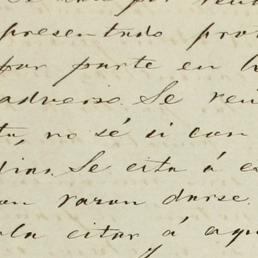 presentado pro
por parte en l
adverso. Se reu
to, no sé si con
dias. Se cita á e
on razon darse
ola citar á aqu